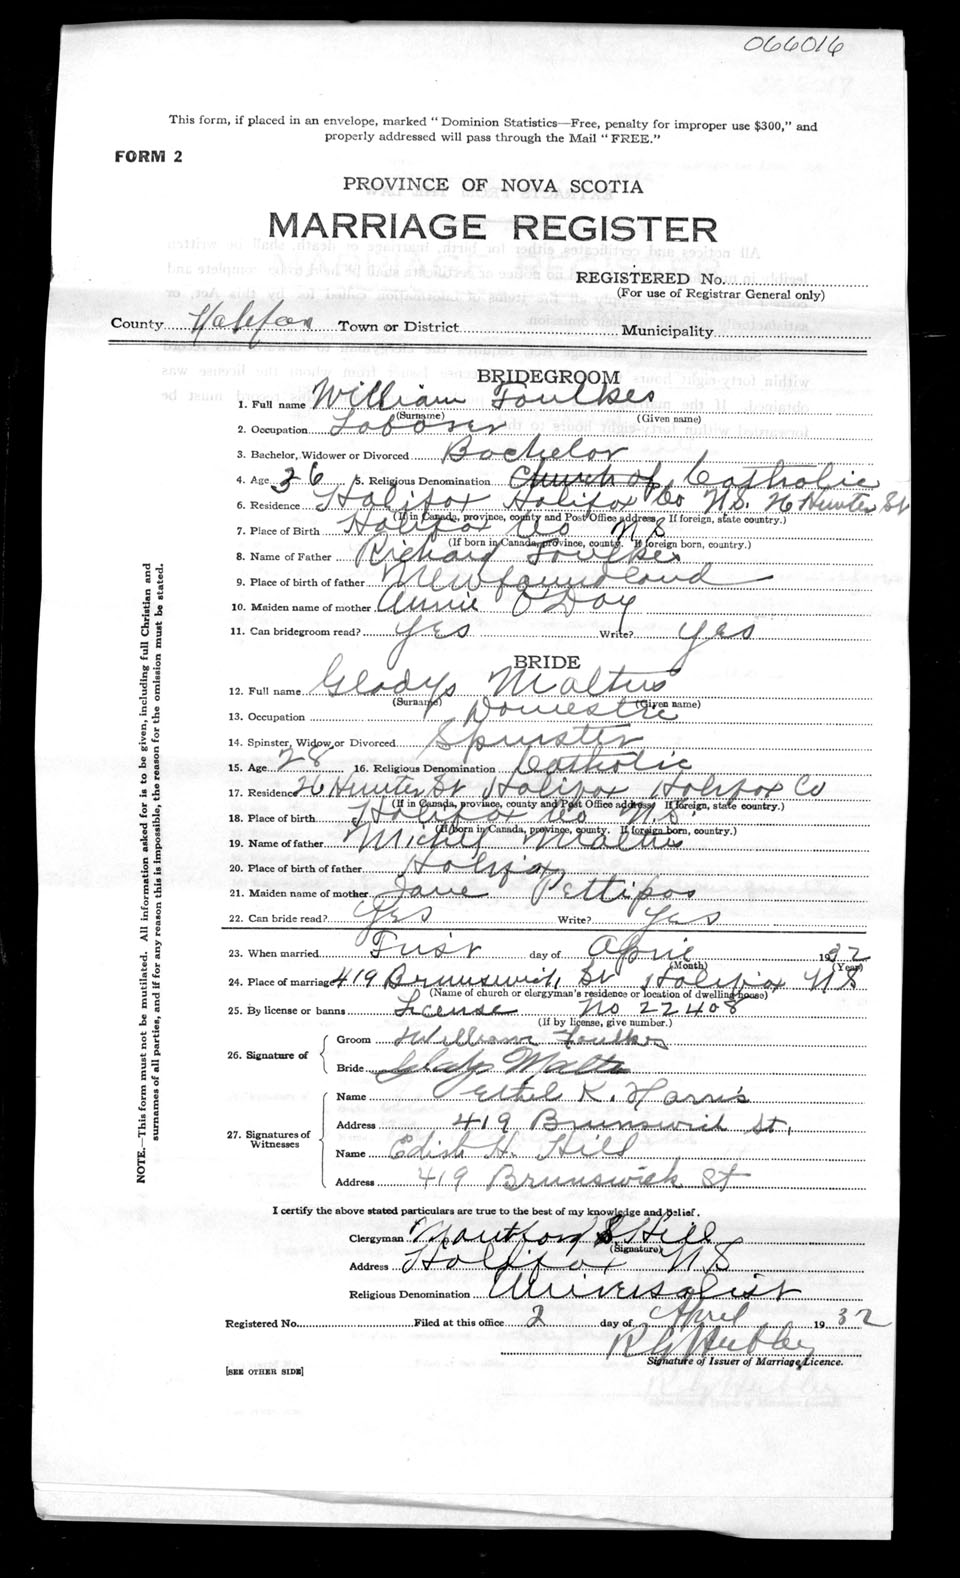 066016
This form, if placed in an envelope, marked " Dominion Statistics—Free, penalty for improper use $300," and
properly addressed will pass through the Mail " FREE."
FORM 2
PROVINCE OF NOVA SCOTIA
MARRIAGE REGISTER
REGISTERED No.
(For use of Registrar General only)
County Halifax Town or District Municipality
BRIDEGROOM
1. Full name William Foulkes
(Surname) (Given name)
2. Occupation Laborer
3. Bachelor, Widower or Divorced Bachelor
4. Age 36 5. Religious Denomination Church of Catholic
6. Residence Halifax Halifax Co N.S. 26 Hunter St
(If in Canada, province, county and Post Office address. If foreign, state country.)
7. Place of Birth Halifax Co N S
(If born in Canada, province, county. If foreign born, country.)
8. Name of Father Richard Foulkes
9. Place of birth of father Newfoundland
10. Maiden name of mother Annie O'Day
11. Can bridegroom read? Yes Write? Yes
BRIDE
12. Full name Gladys Maltus
(Surname) (Given name)
13. Occupation Domestic
14. Spinster, Widow or Divorced Spinster
15. Age 28 16. Religious Denomination Catholic
17. Residence 26 Hunter St Halifax Halifax Co
(If in Canada, province, county and Post Office address. If foreign, state country.)
18. Place of birth Halifax Co N.S.
(If born in Canada, province, county. If foreign born, country.)
19. Name of father Michel Maltus
20. Place of birth of father Halifax
21. Maiden name of mother Jane Pettipas
22. Can bride read? Yes Write? Yes
23. When married First day of April 1932
(Month) (Year)
24. Place of marriage 419 Brunswick St Halifax N S
(Name of church or clergyman's residence or location of dwelling house)
25. By license or banns License No 22408
(If by license, give number.)
26. Signature of
Groom William Foulkes
Bride Gladys Maltus
27. Signatures of Witnesses
Name Ethel K. Harris
Address 419 Brunswick St.
Name Edith H. Hill
Address 419 Brunswick St
I certify the above stated particulars are true to the best of my knowledge and belief.
Clergyman Hill
(Signature)
Address Halifax N S
Religious Denomination Universalist
Registered No. Filed at this office 2 day of April 1932
Signature of Issuer of Marriage Licence.
[SEE OTHER SIDE]
NOTE.—This form must not be mutilated. All information asked for is to be given, including full Christian and
surnames of all parties, and if for any reason this is impossible, the reason for the omission must be stated.